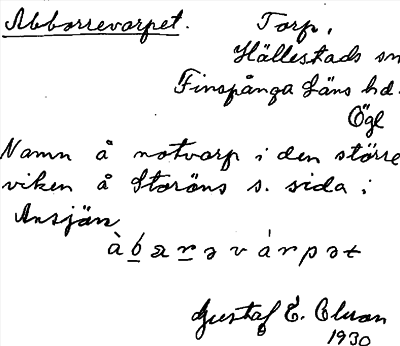 Abborrevarpet. Torp,
Hällestads sn
Finspånga läns hd.
Ögl
Namn å notvarp i den större
viken å Storöns s. sida i
Ansjön
àb̲ar̲ əvárpət
Gustaf E.
1930